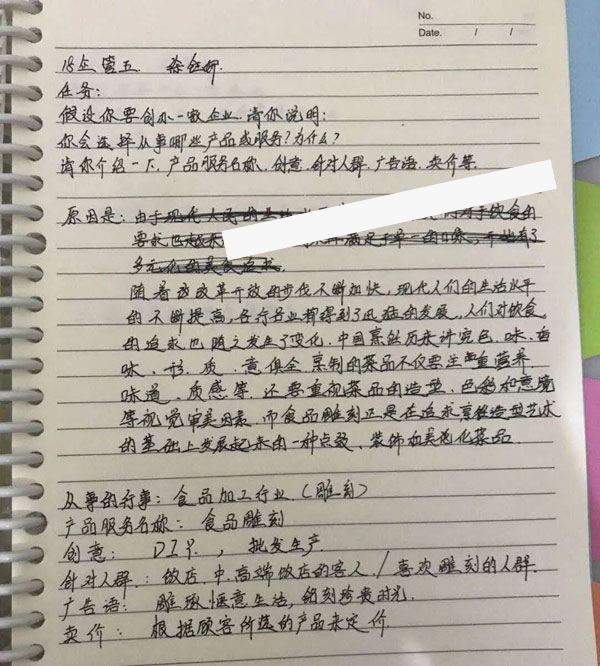 No.
Date. / /
15年 管五
任务:
假设你要创办一家企业,请你说明:
你会选择从事哪些产品或服务?为什么?
请你介绍一下,产品服务名称、创意、针对人群、广告语、卖价等.
原因是: 由于现代人民的 对于饮食的
要求也越来 满足于单一的口味,
多元化的美食
随着改革开放的步伐不断加快,现代人们的生活水平
的不断提高,各行各业都得到了迅猛的发展,人们对饮食
的追求也随之发生了变化.中国烹饪历来讲究色、味、香
味、形、质、意俱全,烹制的菜品不仅要注重营养、
味道、质感等,还要重视菜品的造型、色彩和意境
等视觉审美因素.而食品雕刻正是在追求烹饪造型艺术
的基础上发展起来的一种点缀、装饰和美化菜品.
从事的行事: 食品加工行业 (雕刻)
产品服务名称: 食品雕刻
创意: DIY. , 批发生产
针对人群: 饭店.中.高端饭店的客人 / 喜欢雕刻的人群.
广告语: 雕琢惬意生活,铭刻珍贵时光.
卖价: 根据顾客所选的产品来定价